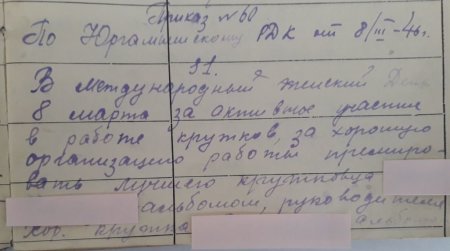 Приказ № 60
По Юргамышскому РДК от 8/III-46г.
§1.
В международный женский День
8 марта за активное участие
в работе кружков, за хорошую
организацию работы премиро-
вать лучшего кружковца
альбомом, руководителя
хор. кружка альбомом